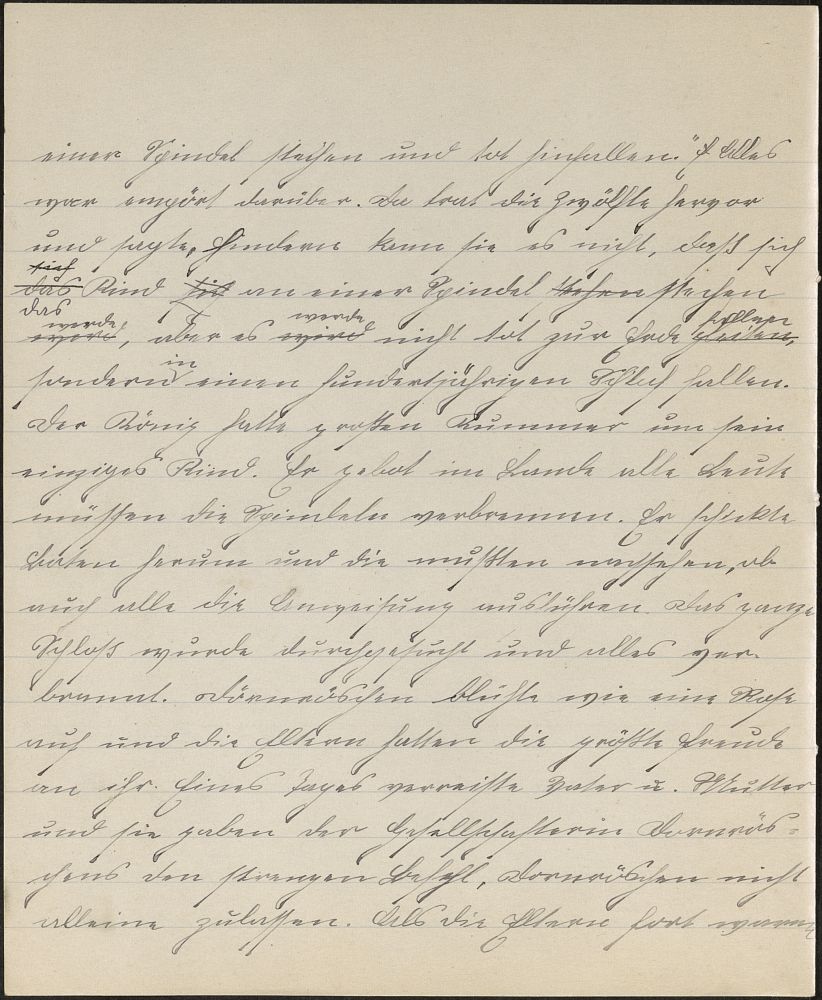 einer Spindel stechen und tot hinfallen." Alles
war empört darüber. Da trat die Zwölfte hervor
und sagte, hindern kann sie es nicht, daß sich
sich
das Kind sich an einer Spindel stechen
das
werde werde fallen
word, aber es wird nicht tot zur Erde gleiten,
in
sondern einen hundertjährigen Schlaf fallen.
Der König hatte großen Kummer um sein
einziges Kind. Er gebot im Lande alle Leute
müssen die Spindeln verbrennen. Er schickte
Boten herum und die mußten nachsehen, ob
auch alle die Anweisung ausführen. Das ganze
Schloß wurde durchgesucht und alles ver-
brannt. Dörnröschen blühte wie eine Rose
auf und die Eltern hatten die größte Freude
an ihr. Eines Tages verreiste Vater u. Mutter
und sie gaben der Gesellschafterin Dornrös-
chens den strengen Befehl, Dornröschen nicht
alleine zulassen. Als die Eltern fort waren